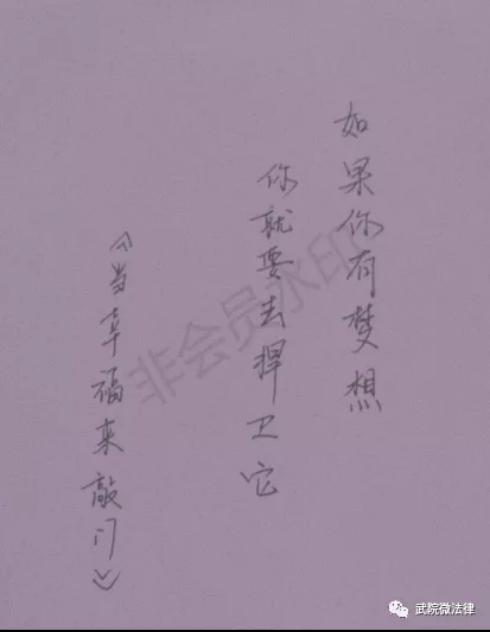 如果你有梦想
你就要去捍卫它
《当幸福来敲门》
非会员水印
武院微法律